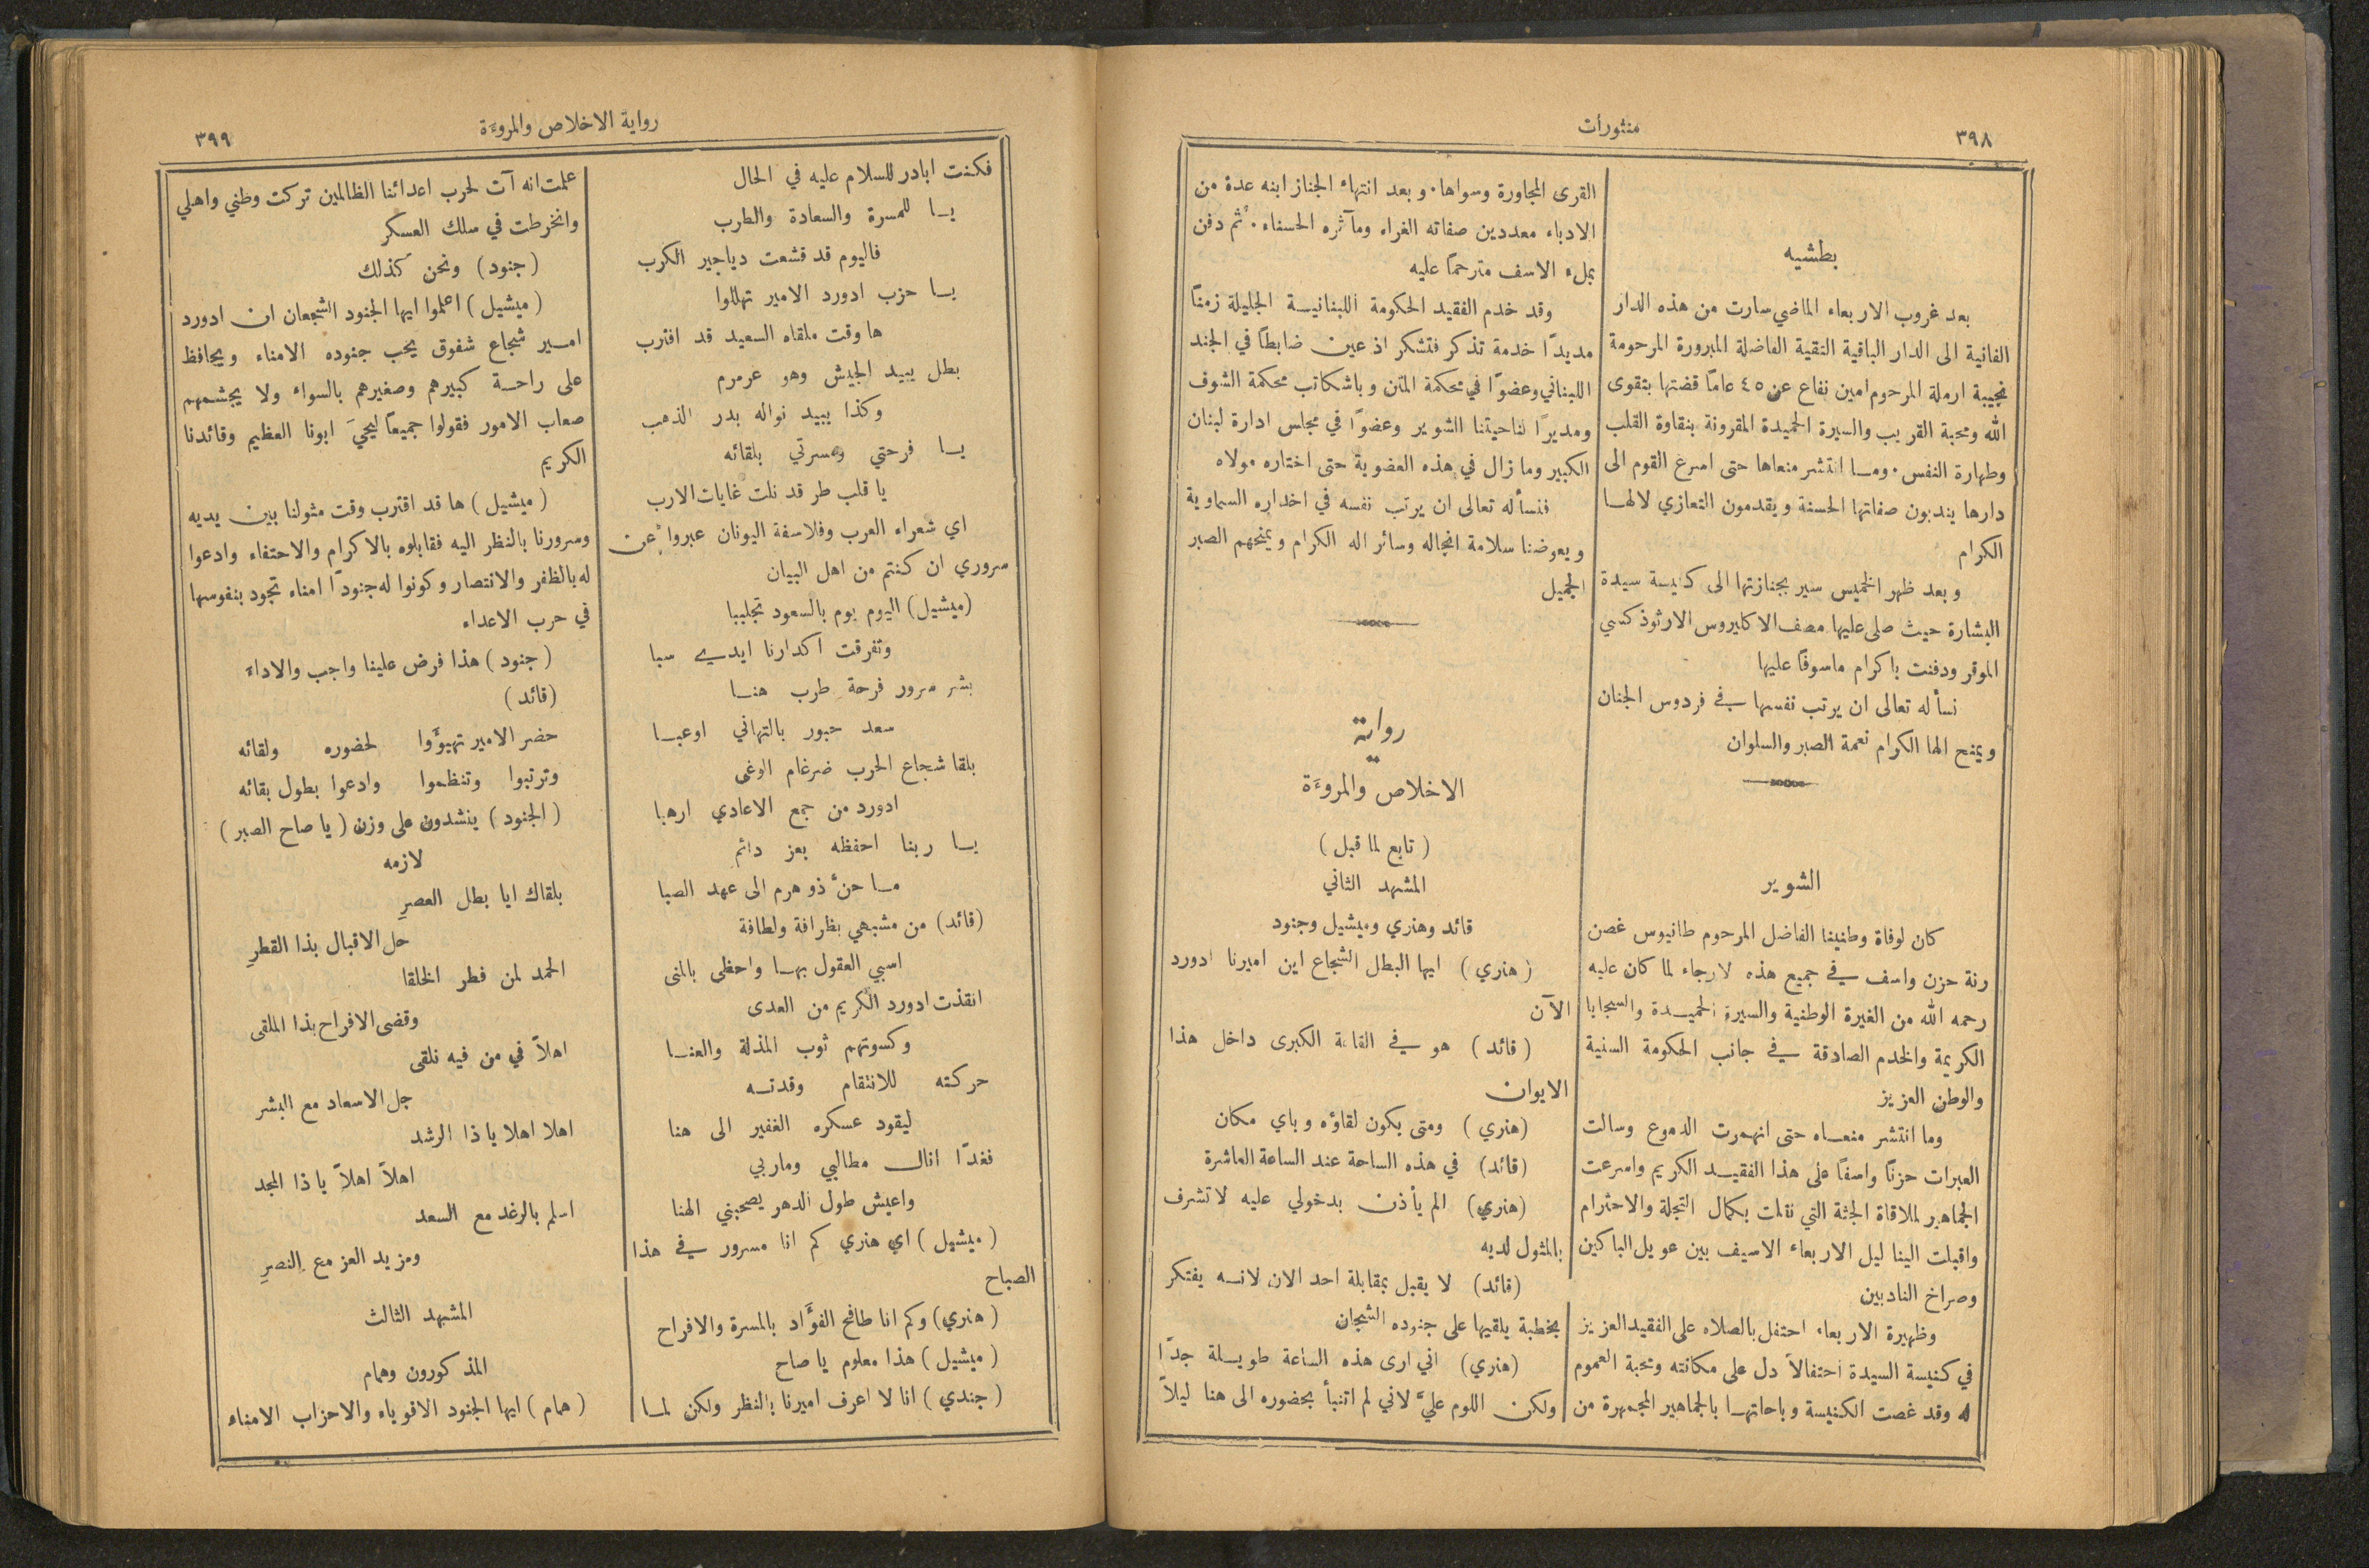 ٣٩٨
منثورات
بطشيه
بعد غروب الاربعاء الماضي سارت من هذه الدار
الفانية الى الدار الباقية التقية الفاضلة المبرورة المرحومة
نجيبة ارملة المرحوم امين نفاع عن ٤٥ عاماً قضتها بتقوى
الله ومحبة القريب والسيرة الحميدة المقرونة بنقاوة القلب
وطهارة النفس. وما انتشر منعاها حتى اسرع القوم الى
دارها يندبون صفاتها الحسنة ويقدمون التعازي لالها
الكرام
وبعد ظهر الخميس سير بجنازتها الى كنيسة سيدة
البشارة حيث صلى عليها مصف الاكليروس الارثوذكسي
الموقر ودفنت باكرام ماسوفاً عليها
نسأله تعالى ان يرتب نفسها في فردوس الجنان
ويمنح الها الكرام نعمة الصبر والسلوان
الشوير
كان لوفاة وطنينا الفاضل المرحوم طانيوس غصن
رنة حزن واسف في جميع هذه الارجاء لما كان عليه
رحمه الله من الغيرة الوطنية والسيرة الحميدة والسجايا
الكريمة والخدم الصادقة في جانب الحكومة السنية
والوطن العزيز
وما انتشر منعاه حتى انهمرت الدموع وسالت
العبرات حزناً واسفاً على هذا الفقيد الكريم واسرعت
الجماهير لملاقاة الجثة التي نقلت بكمال التجلة والاحترام
واقبلت الينا ليل الاربعاء الاسيف بين عويل الباكين
وصراخ النادبين
وظهيرة الاربعاء احتفل بالصلاه على الفقيد العزيز
في كنيسة السيدة احتفالاً دل على مكانته ومحبة العموم
له وقد غصت الكنيسة وباحاتها بالجماهير المجمهرة من
القرى المجاورة وسواها. وبعد انتهاء الجناز ابنه عدة من
الادباء معددين صفاته الغراء ومآثره الحسناء. ثم دفن
بملء الاسف مترحماً عليه
وقد خدم الفقيد الحكومة اللبنانية الجليلة زمناً
مديداً خدمة تذكر فتشكر اذ عين ضابطاً في الجند
اللبناني وعضوًا في محكمة المتن وباشكاتب محكمة الشوف
ومديرًا لناحيتنا الشوير وعضوًا في مجلس ادارة لبنان
الكبير وما زال في هذه العضوية حتى اختاره مولاه
فنسأله تعالى ان يرتب نفسه في اخداره السماوية
ويعوضنا سلامة انجاله وسائر اله الكرام ويمنحهم الصبر
الجميل
رواية
الاخلاص والمروءَة
(تابع لما قبل)
المشهد الثاني
قائد وهنري وميشيل وجنود
(هنري) ايها البطل الشجاع اين اميرنا ادورد
الآن
(قائد) هو في القاعة الكبرى داخل هذا
الايوان
(هنري) ومتى يكون لقاؤه وباي مكان
(قائد) في هذه الساحة عند الساعة العاشرة
(هنري) الم يأذن بدخولي عليه لاتشرف
بالمثول لديه
(قائد) لا يقبل بمقابلة احد الان لانه يفتكر
بخطبة يلقيها على جنوده الشجعان
(هنري) اني ارى هذه الساعة طويلة جدًا
ولكن اللوم عليَّ لاني لم اتنبأ بحضوره الى هنا ليلاً
رواية الاخلاص والمروءَة
٣٩٩
فكنت ابادر للسلام عليه في الحال
يا للمسرة والسعادة والطرب
فاليوم قد قشعت دياجير الكرب
يا حزب ادورد الامير تهللوا
ها وقت ملقاه السعيد قد اقترب
بطل يبيد الجيش وهو عرمرم
وكذا يبيد نواله بدر الذهب
يا فرحتي ومسرتي بلقائه
يا قلب طر قد نلت غايات الارب
اي شعراء العرب وفلاسفة اليونان عبروا عن
سروري ان كنتم من اهل البيان
(ميشيل) اليوم يوم بالسعود تجلببا
وتفرقت اكدارنا ايدي سبا
بشر سرور فرحة طرب هنا
سعد حبور بالتهاني اوعبا
بلقا شجاع الحرب ضرغام الوغى
ادورد من جمع الاعادي ارهبا
يا ربنا احفظه بعز دائم
ما حنَّ ذو هرم الى عهد الصبا
(قائد) من مشبهي بظرافة ولطافة
اسبي العقول بها واحظى بالمنى
انقذت ادورد الكريم من العدى
وكسوتهم ثوب المذلة والعنا
حركته للانتقام وقدته
ليقود عسكره الغفير الى هنا
فغدًا انال مطالبي وماربي
واعيش طول الدهر يصحبني الهنا
(ميشيل) اي هنري كم انا مسرور في هذا
الصباح
(هنري) وكم انا طافح الفؤَاد بالمسرة والافراح
(ميشيل) هذا معلوم يا صاح
(جندي) انا لا اعرف اميرنا بالنظر ولكن لما
علمت انه آت لحرب اعدائنا الظالمين تركت وطني واهلي
وانخرطت في سلك العسكر
(جنود) ونحن كذلك
(ميشيل) اعلموا ايها الجنود الشجعان ان ادورد
امير شجاع شفوق يحب جنوده الامناء ويحافظ
على راحة كبيرهم وصغيرهم بالسواء ولا يجشمهم
صعاب الامور فقولوا جميعاً ليحيَ ابونا العظيم وقائدنا
الكريم
(ميشيل) ها قد اقترب وقت مثولنا بين يديه
وسرورنا بالنظر اليه فقابلوه بالاكرام والاحتفاء وادعوا
له بالظفر والانتصار وكونوا له جنودًا امناء تجود بنفوسها
في حرب الاعداء
(جنود) هذا فرض علينا واجب والاداء
(قائد)
حضر الامير تهيوَّا لحضوره ولقائه
وترتبوا وتنظموا وادعوا بطول بقائه
(الجنود) ينشدون على وزن (يا صاح الصبر)
لازمه
بلقاك ايا بطل العصرِ
حل الاقبال بذا القطرِ
الحمد لمن فطر الخلقا
وقضى الافراح بذا الملقى
اهلاً في من فيه نلقى
جل الاسعاد مع البشر
اهلا اهلا يا ذا الرشد
اهلاً اهلاً يا ذا المجد
اسلم بالرغد مع السعد
ومزيد العز مع النصرِ
المشهد الثالث
المذكورون وهمام
(همام) ايها الجنود الاقوياء والاحزاب الامناء